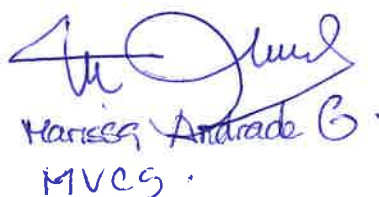 Marissa Andrade G.
MVCS.